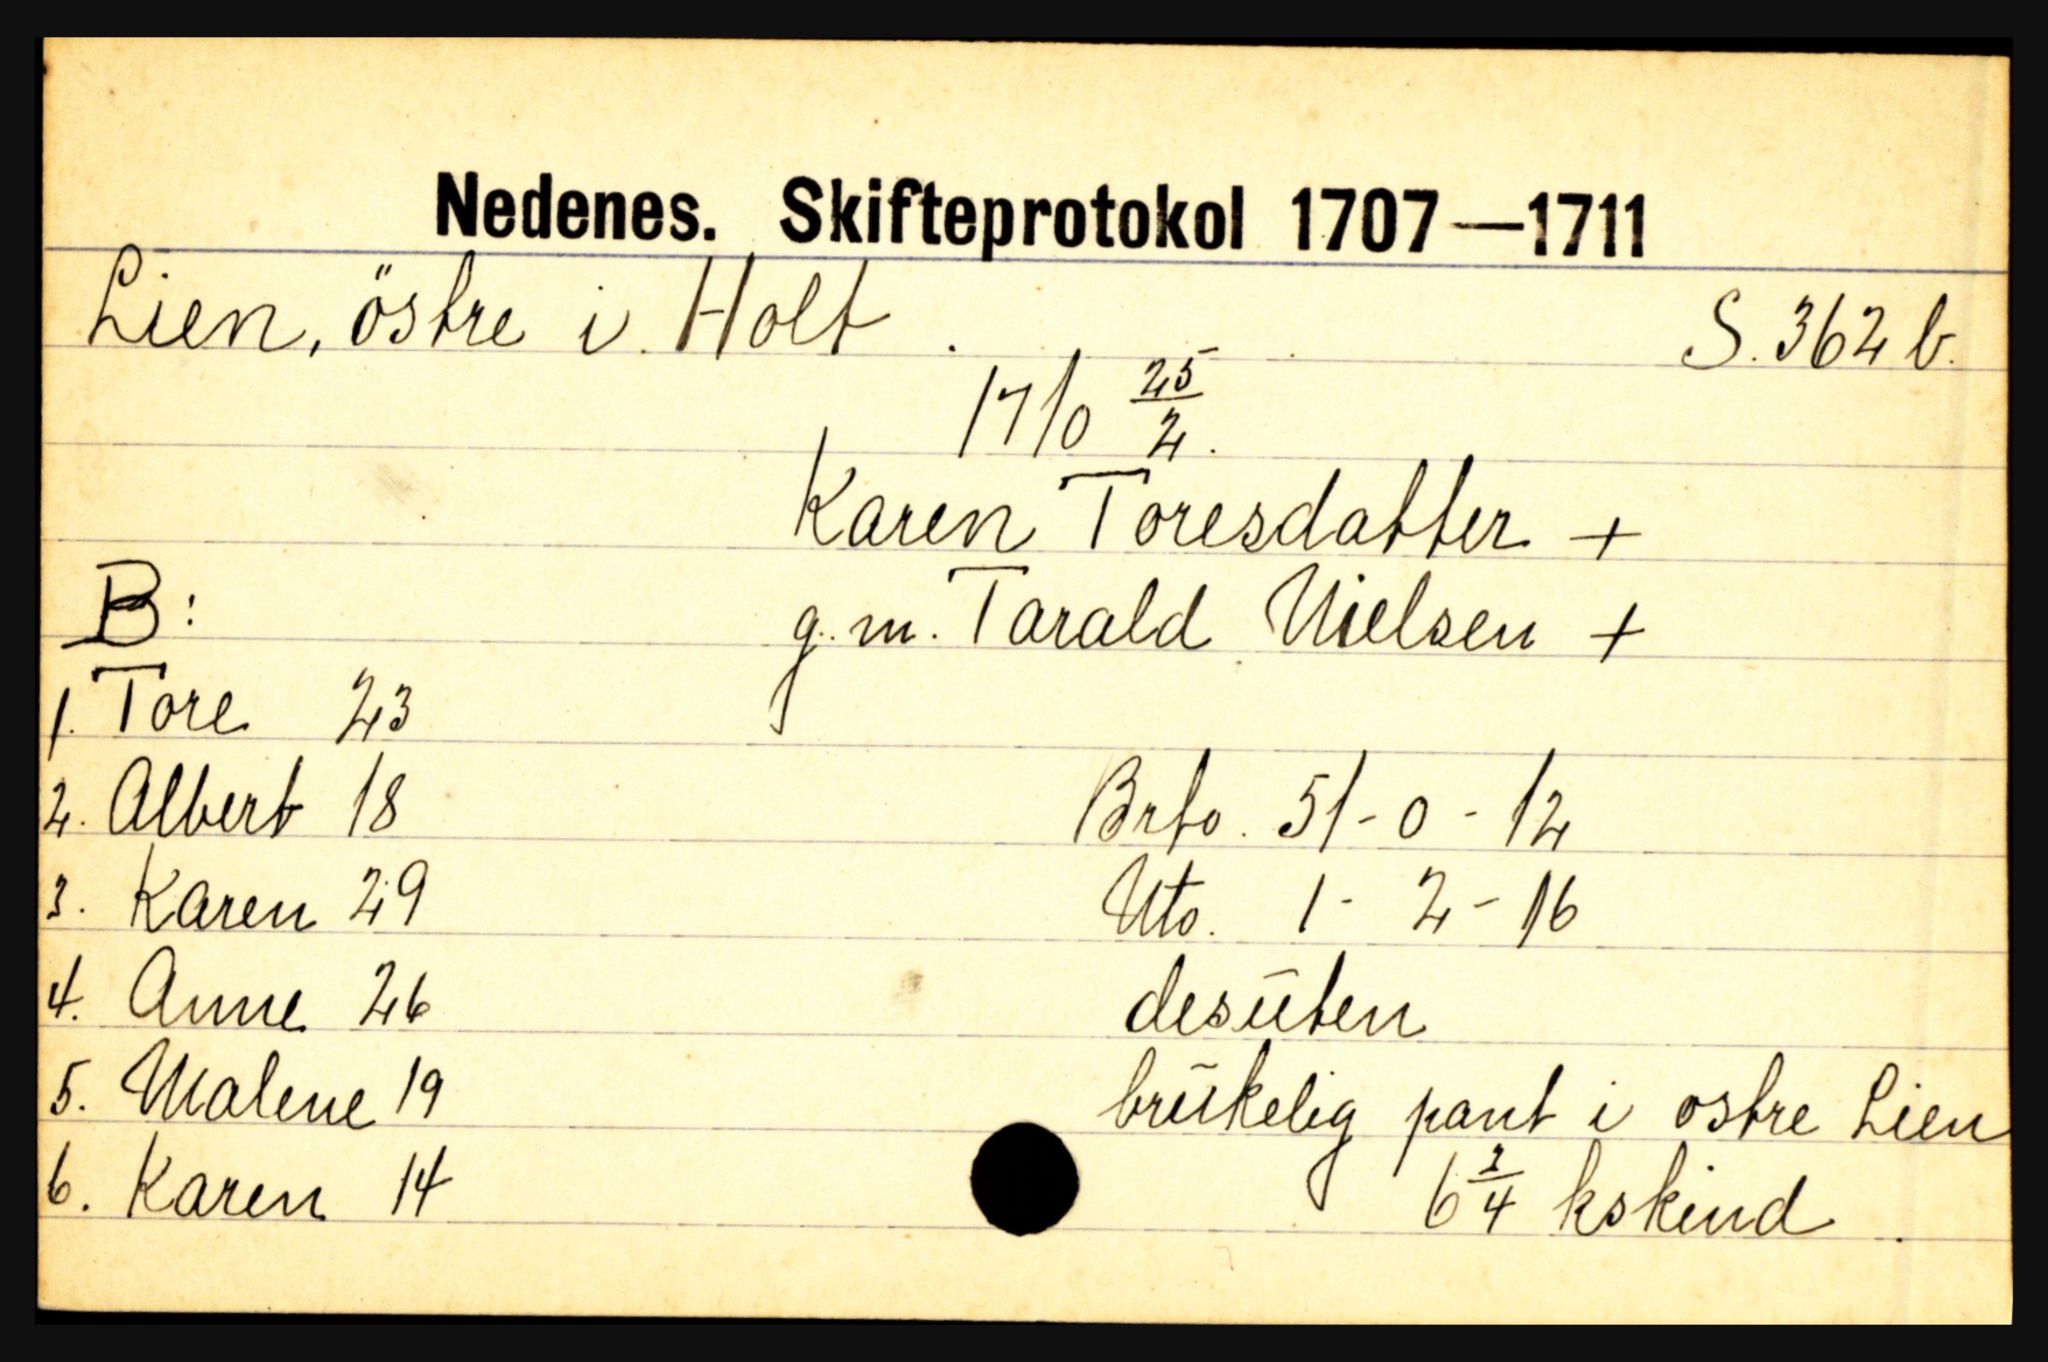 Nedenes. Skifteprotokol 1707—1711
Lien, östre i Holt. S. 362 b.
1710 25/2.
Karen Toresdatter +
B: g.m. Tarald Nielsen +
1. Tore 23
2. Albert 18 Brto. 51-0-12
3. Karen 29 Uto. 1-2-16
4. Anne 26 desūten
5. Malene 19 brūkelig pant i ostre Lien
6. Karen 14 6 3/4 kskind.